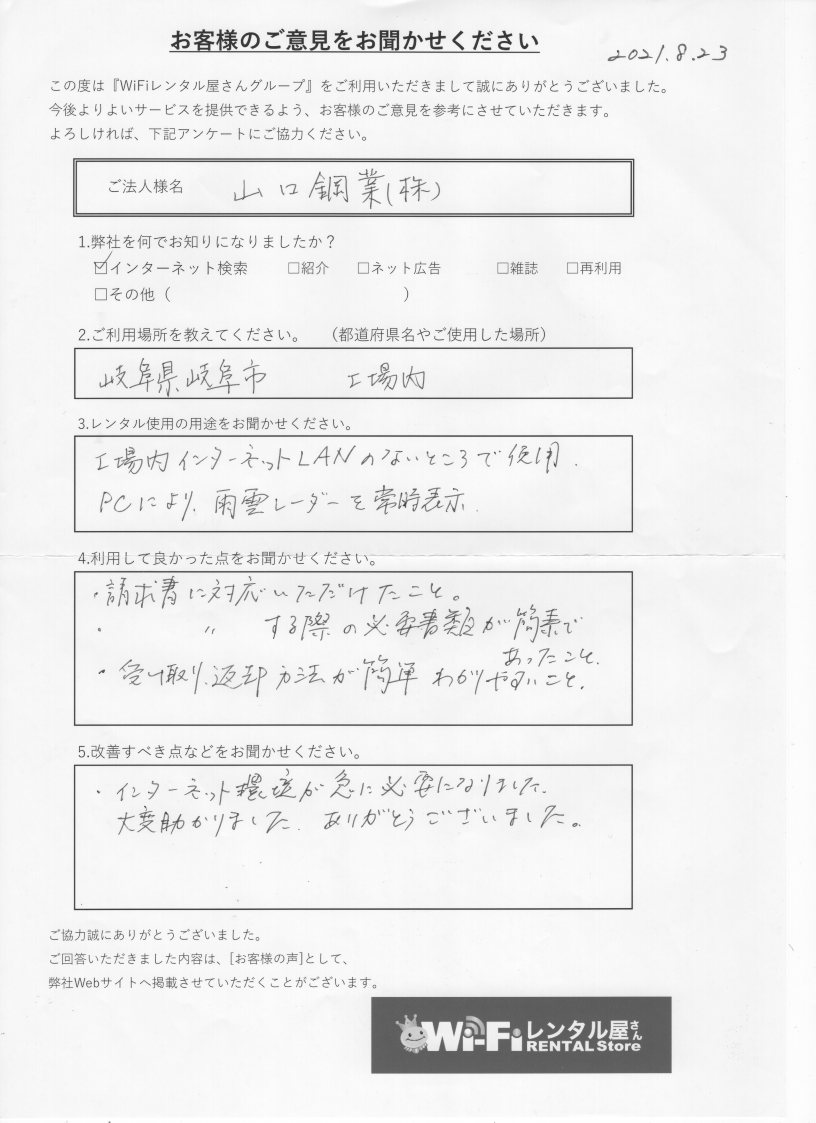 お客様のご意見をお聞かせください
2021.8.23
この度は『WiFiレンタル屋さんグループ』をご利用いただきまして誠にありがとうございました。
今後よりよいサービスを提供できるよう、お客様のご意見を参考にさせていただきます。
よろしければ、下記アンケートにご協力ください。
ご法人様名 山口鋼業(株)
1.弊社を何でお知りになりましたか？
☑インターネット検索 □紹介 □ネット広告 □雑誌 □再利用
□その他（ ）
2.ご利用場所を教えてください。 （都道府県名やご使用した場所）
岐阜県岐阜市 工場内
3.レンタル使用の用途をお聞かせください。
工場内インターネットLANのないところで使用.
PCにより、雨雲レーダーを常時表示.
4.利用して良かった点をお聞かせください。
・請求書に対応いただけたこと。
・ 〃 する際の必要書類が簡素で
あったこと.
・受け取り、返却方法が簡単 わかりやすいこと.
5.改善すべき点などをお聞かせください。
・インターネット環境が急に必要になりました.
大変助かりました. ありがとうございました。
ご協力誠にありがとうございました。
ご回答いただきました内容は、[お客様の声]として、
弊社Webサイトへ掲載させていただくことがございます。
Wi-Fiレンタル屋さん
RENTAL Store